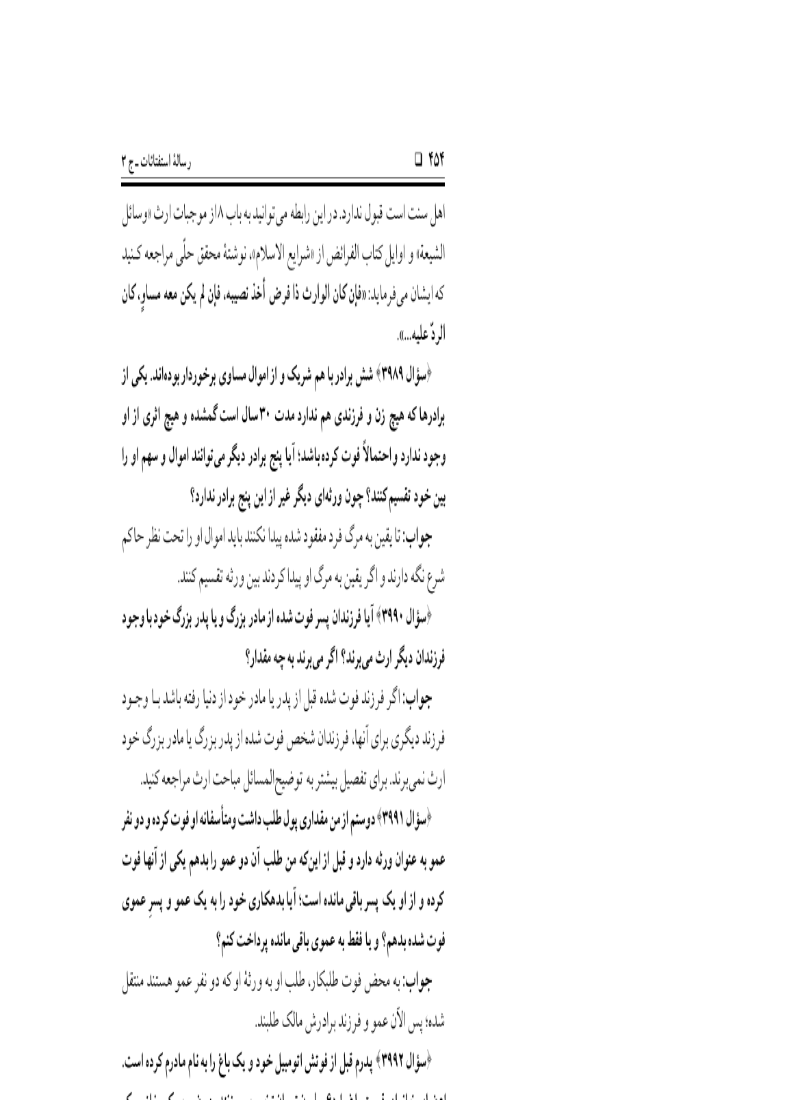 ۴۵۴ ❑ رسالهٔ استفتائات ـ ج ۳
اهل سنت است قبول ندارد. در این رابطه می‌توانید به باب ۸ از موجبات ارث «وسائل
الشیعة» و اوایل کتاب الفرائض از «شرایع الاسلام»، نوشتهٔ محقق حلّی مراجعه کـنید
که ایشان می‌فرماید: «فإن کان الوارث ذا فرض أخذ نصیبه، فإن لم یکن معه مساوٍ، کان
الردّ علیه...».
﴿سؤال ۳۹۸۹﴾ شش برادر با هم شریک و از اموال مساوی برخوردار بوده‌اند. یکی از
برادرها که هیچ زن و فرزندی هم ندارد مدت ۳۰ سال است گمشده و هیچ اثری از او
وجود ندارد و احتمالاً فوت کرده باشد؛ آیا پنج برادر دیگر می‌توانند اموال و سهم او را
بین خود تقسیم کنند؟ چون ورثه‌ای دیگر غیر از این پنج برادر ندارد؟
جواب: تا یقین به مرگ فرد مفقود شده پیدا نکنند باید اموال او را تحت نظر حاکم
شرع نگه دارند و اگر یقین به مرگ او پیدا کردند بین ورثه تقسیم کنند.
﴿سؤال ۳۹۹۰﴾ آیا فرزندان پسر فوت شده از مادر بزرگ و یا پدر بزرگ خود با وجود
فرزندان دیگر ارث می‌برند؟ اگر می‌برند به چه مقدار؟
جواب: اگر فرزند فوت شده قبل از پدر یا مادر خود از دنیا رفته باشد بـا وجـود
فرزند دیگری برای آنها، فرزندان شخص فوت شده از پدر بزرگ یا مادر بزرگ خود
ارث نمی‌برند. برای تفصیل بیشتر به توضیح‌المسائل مباحث ارث مراجعه کنید.
﴿سؤال ۳۹۹۱﴾ دوستم از من مقداری پول طلب داشت ومتأسفانه او فوت کرده و دو نفر
عمو به عنوان ورثه دارد و قبل از این‌که من طلب آن دو عمو را بدهم یکی از آنها فوت
کرده و از او یک پسر باقی مانده است؛ آیا بدهکاری خود را به یک عمو و پسرِ عموی
فوت شده بدهم؟ و یا فقط به عموی باقی مانده پرداخت کنم؟
جواب: به محض فوت طلبکار، طلب او به ورثهٔ او که دو نفر عمو هستند منتقل
شده؛ پس الآن عمو و فرزند برادرش مالک طلبند.
﴿سؤال ۳۹۹۲﴾ پدرم قبل از فوتش اتومبیل خود و یک باغ را به نام مادرم کرده است.